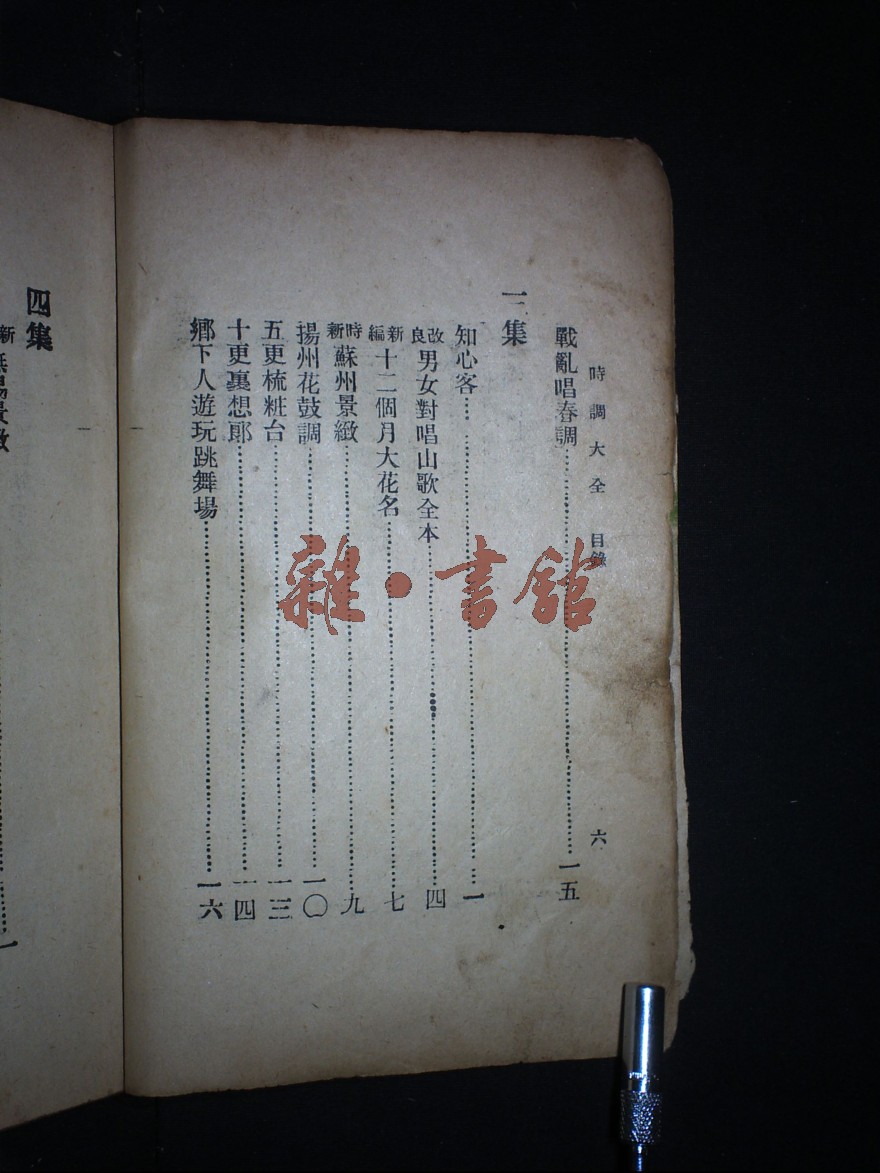 時調大全 目錄 六
戰亂唱春調……………………一五
三集
知心客……………………一
改良男女對唱山歌全本……………………四
新編十二個月大花名……………………七
時新蘇州景緻……………………九
揚州花鼓調……………………一〇
五更梳粧台……………………一三
十更裏想郎……………………一四
鄉下人遊玩跳舞場……………………一六
四集
新
雜·書館